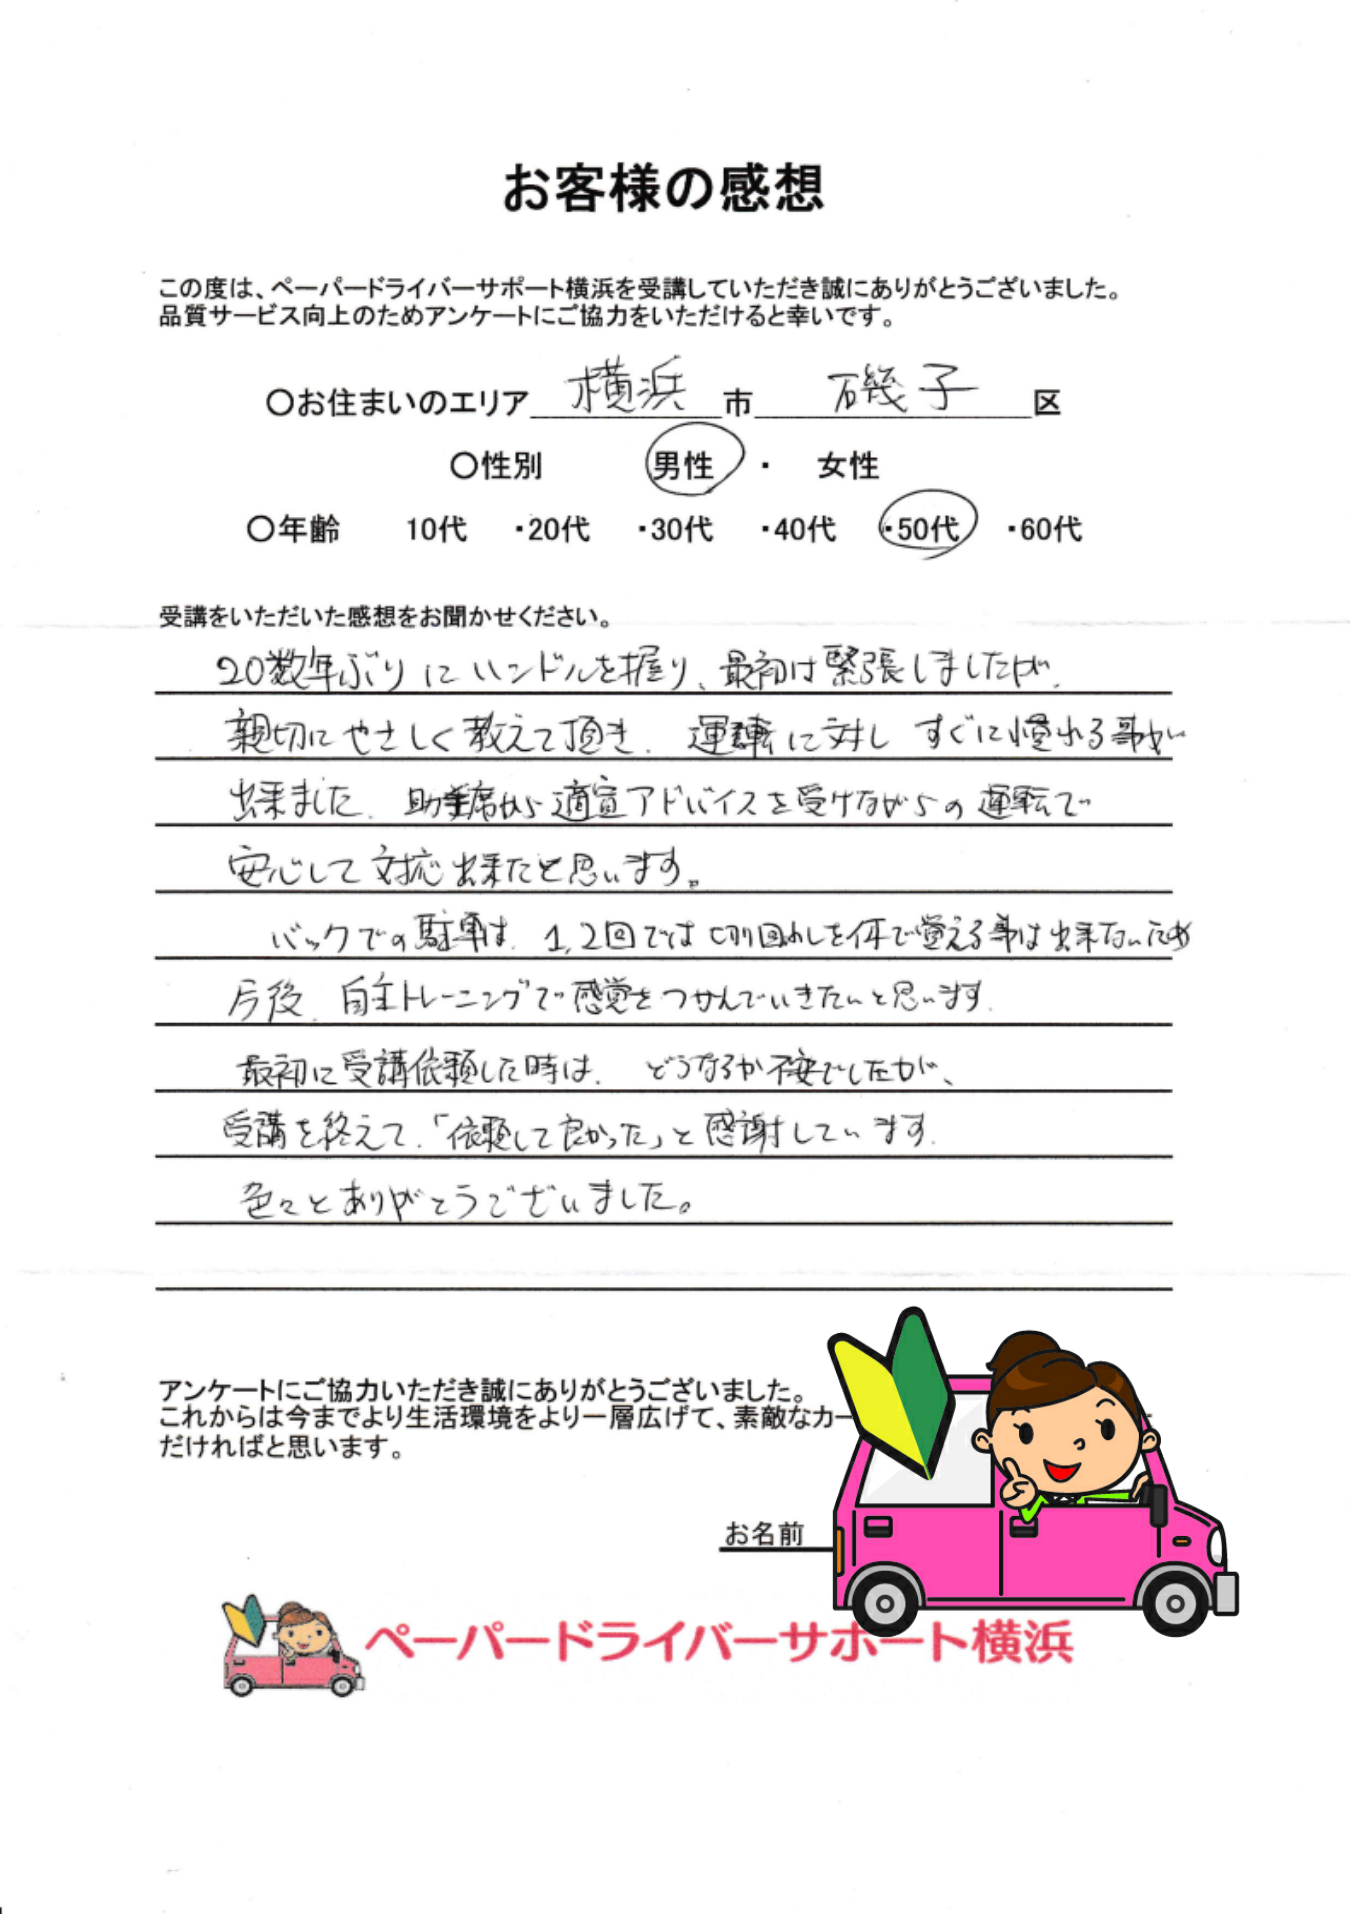 お客様の感想
この度は、ペーパードライバーサポート横浜を受講していただき誠にありがとうございました。
品質サービス向上のためアンケートにご協力をいただけると幸いです。
〇お住まいのエリア 横浜 市 磯子 区
〇性別 男性 ・ 女性
〇年齢 10代 ・20代 ・30代 ・40代 ・50代 ・60代
受講をいただいた感想をお聞かせください。
20数年ぶりにハンドルを握り、最初は緊張しましたが、
親切にやさしく教えて頂き、運転に対しすぐに慣れる事が
出来ました。助手席から適宜アドバイスを受けながらの運転で
安心して対応出来たと思います。
バックでの駐車は、1,2回では切り回しを体で覚える事は出来ないため
今後、自主トレーニングで感覚をつかんでいきたいと思います。
最初に受講依頼した時は、どうなるか不安でしたが、
受講を終えて、「依頼して良かった」と感謝しています。
色々とありがとうございました。
アンケートにご協力いただき誠にありがとうございました。
これからは今までより生活環境をより一層広げて、素敵なカー
だければと思います。
お名前
ペーパードライバーサポート横浜